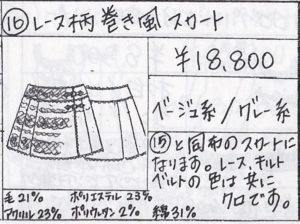 ⑯ レース柄巻き風スカート
¥18,800
ベージュ系/グレー系
⑮と同布のスカートに
なります。レース、キルト
ベルトの色は共に
クロです。
毛21% ポリエステル23%
アクリル23% ポリウレタン2% 綿31%